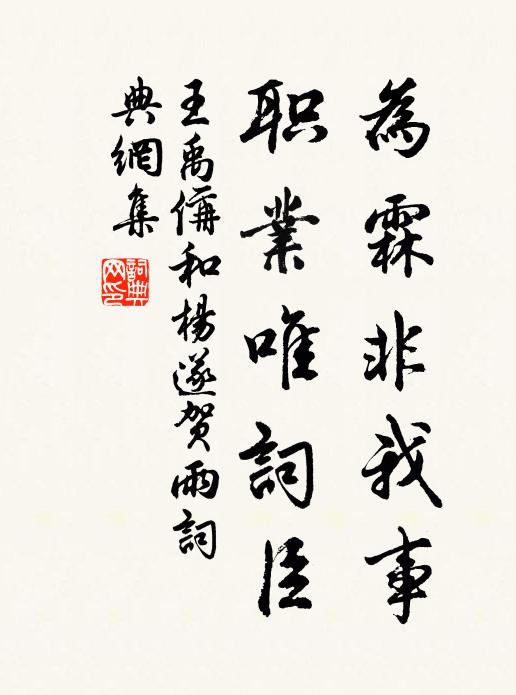 為霖非我事
职業唯詞臣
王禹偁和楊遂贺雨詞
典網集
詞典网印